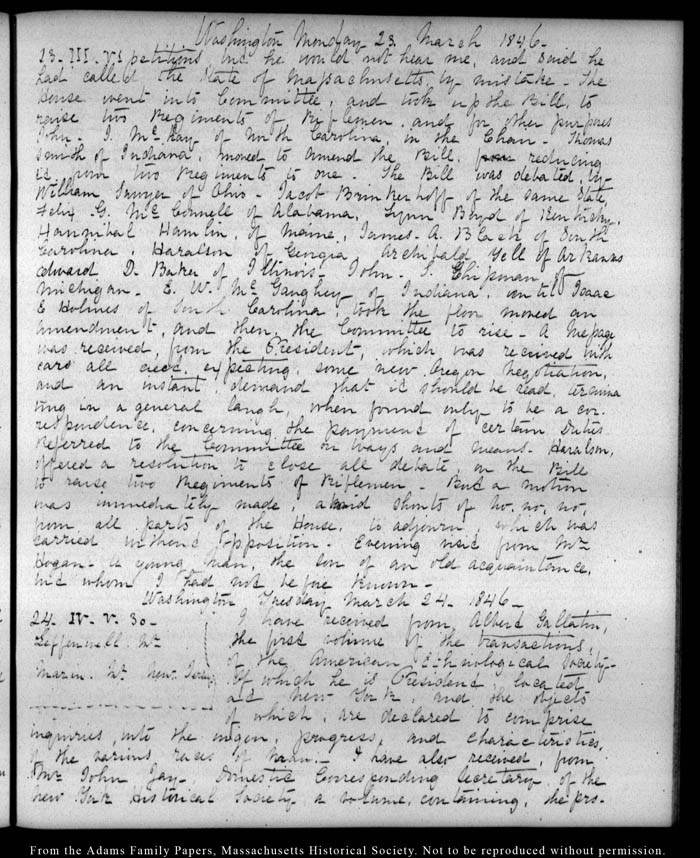 Washington Monday 23. March 1846-
23. III. VI petitions but he would not hear me, and said he
had called the State of Massachusetts, by mistake- The
House went into Committee, and took up the Bill, to
raise two Regiments of Riflemen, and for other purposes
John. I. McKay of North Carolina, in the Chair- Thomas
Smith of Indiana, moved to amend the Bill, reducing
it from two Regiments to one. The Bill was debated, by
William Sawyer of Ohio- Jacob Brinkerhoff, of the same State,
Felix G. McConnell of Alabama, Lynn Boyd of Kentucky,
Hannibal Hamlin, of Maine, James. A. Black of South
Carolina, Haralson of Georgia Archibald Yell of Arkansas
Edward D. Baker of Illinois- John. S. Chipman of
Michigan- E. W. McGaughey of Indiana, until Isaac
E Holmes of South Carolina, took the floor moved an
amendment, and then, the Committee to rise- A Message
was received, from the President, which was received with
ears all erect, expecting, some new Oregon Negotiation,
and an instant, demand that it should be read, termina
ting in a general laugh, when found only to be a cor-
respondence, concerning the payment of certain Duties
referred to the Committee on ways and means- Haralson,
offered a resolution to close all debate, on the Bill
to raise two Regiments of Riflemen- But a motion
was immediately made, amid shouts of no, no, no,
from all parts of the House, to adjourn, which was
carried without opposition. Evening visit from Mr
Hogan- a young man, the son of an old acquaintance,
but whom I had not before known-
Washington Tuesday March 24- 1846-
24. IV- V. 30- I have received from Albert Gallatin,
Leffenwell Mr the first volume of the transactions,
Marsh. Mr New Jersey of the American Ethnological Society-
of which he is President, located
at New York, and the objects
of which, are declared to comprise
inquiries, into the origin, progress, and characteristics,
of the various races of man- I have also received, from
Mr John Jay- Domestic Corresponding Secretary, of the
New York Historical Society, a volume, containing, the pro-
From the Adams Family Papers, Massachusetts Historical Society. Not to be reproduced without permission.